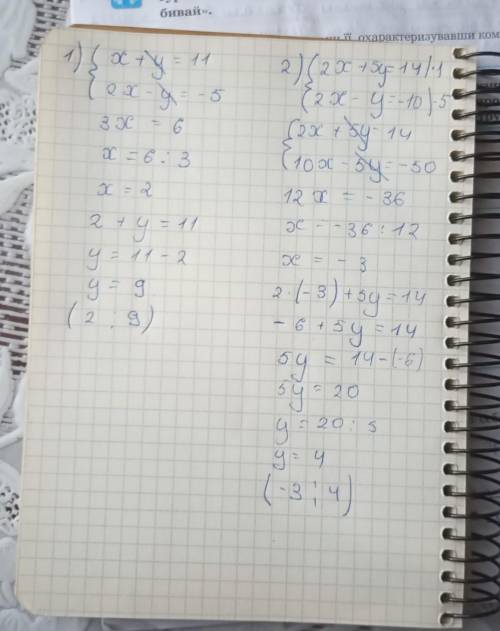 бивай».
охарактеризувавши ком
1) { x + y = 11
2x - y = -5
3x = 6
x = 6 : 3
x = 2
2 + y = 11
y = 11 - 2
y = 9
(2 ; 9)
2) { 2x + 5y = 14 | · 1
2x - y = -10 | · 5
{ 2x + 5y = 14
10x - 5y = -50
12x = -36
x = -36 : 12
x = -3
2 · (-3) + 5y = 14
- 6 + 5y = 14
5y = 14 - (-6)
5y = 20
y = 20 : 5
y = 4
(-3 ; 4)